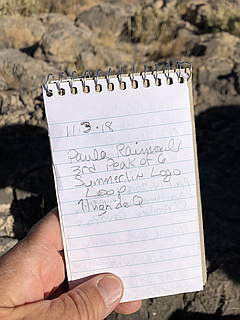 11.3.18
Paula Raimondi
3rd Peak of 6
Summerlin Logo
Loop